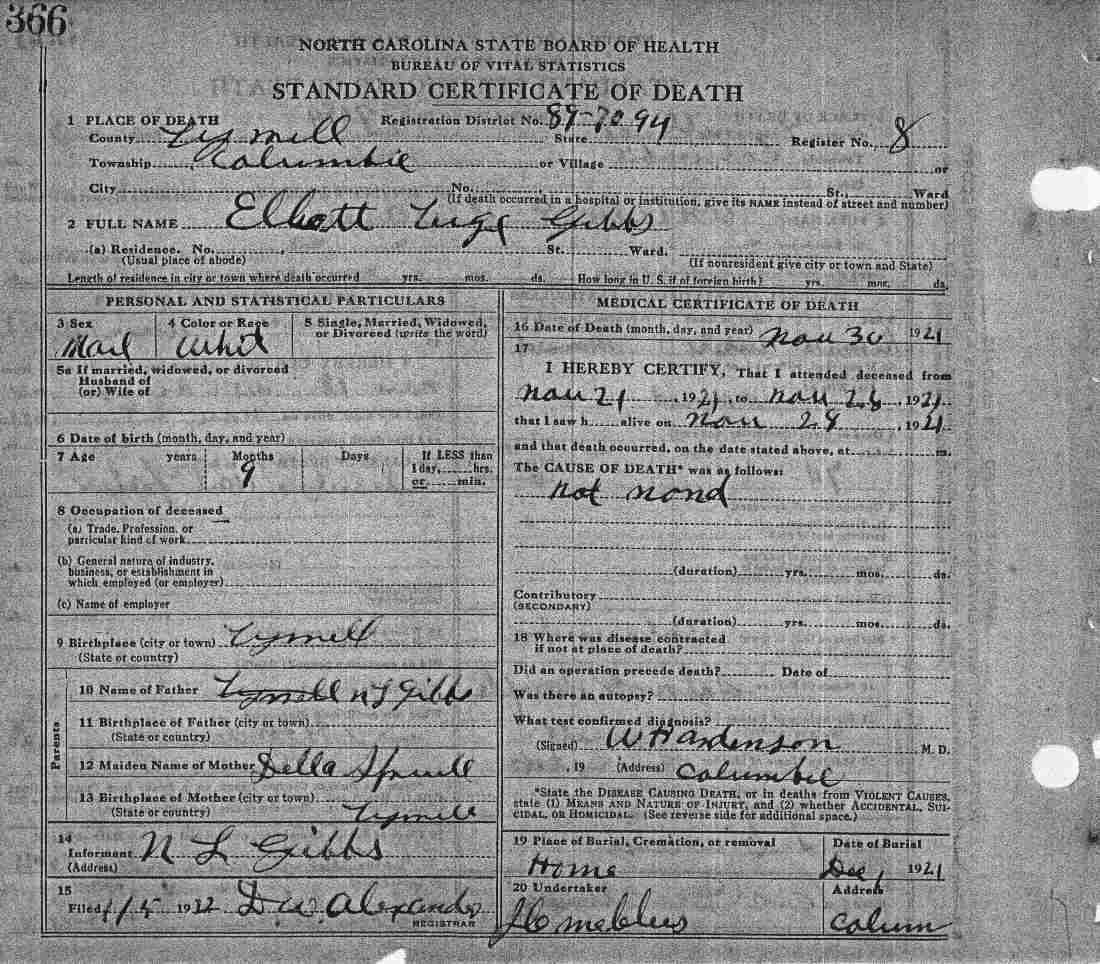 366
NORTH CAROLINA STATE BOARD OF HEALTH
BUREAU OF VITAL STATISTICS
STANDARD CERTIFICATE OF DEATH
1 PLACE OF DEATH Registration District No. 89-7094
County State Register No. 8
Township Columbie or Village or
City No. St. Ward
(If death occurred in a hospital or institution, give its NAME instead of street and number)
2 FULL NAME Gibbs
(a) Residence. No. St. Ward.
(Usual place of abode) (If nonresident give city or town and State)
Length of residence in city or town where death occurred yrs. mos. ds. How long in U. S. if of foreign birth? yrs. mos. ds.
PERSONAL AND STATISTICAL PARTICULARS
3 Sex 4 Color or Race 5 Single, Married, Widowed, or Divorced (write the word)
Mail Whit
5a If married, widowed, or divorced
Husband of
(or) Wife of
6 Date of birth (month, day, and year)
7 Age years Months Days If LESS than
1 day, hrs.
or min.
9
8 Occupation of deceased
(a) Trade, Profession, or
particular kind of work
(b) General nature of industry,
business, or establishment in
which employed (or employer)
(c) Name of employer
9 Birthplace (city or town)
(State or country)
Parents
10 Name of Father N L Gibbs
11 Birthplace of Father (city or town)
(State or country)
12 Maiden Name of Mother Della Spruill
13 Birthplace of Mother (city or town)
(State or country)
14
Informant N L Gibbs
(Address)
15
Filed 1/5 1922 D W. Alexander
REGISTRAR
MEDICAL CERTIFICATE OF DEATH
16 Date of Death (month, day, and year) Nov 30 1921
17
I HEREBY CERTIFY, That I attended deceased from
Nov 21, 1921, to Nov, 1921
that I saw h alive on Nov 28, 1921
and that death occurred, on the date stated above, at m.
The CAUSE OF DEATH* was as follows:
not nond
(duration) yrs. mos. ds.
Contributory
(SECONDARY)
(duration) yrs. mos. ds.
18 Where was disease contracted
if not at place of death?
Did an operation precede death? Date of
Was there an autopsy?
What test confirmed diagnosis?
(Signed) M. D.
, 19 (Address) Columbie
*State the DISEASE CAUSING DEATH, or in deaths from VIOLENT CAUSES,
state (1) MEANS AND NATURE OF INJURY, and (2) whether ACCIDENTAL, SUI-
CIDAL, OR HOMICIDAL. (See reverse side for additional space.)
19 Place of Burial, Cremation, or removal Date of Burial
Home Dec 1 1921
20 Undertaker Address
Colum